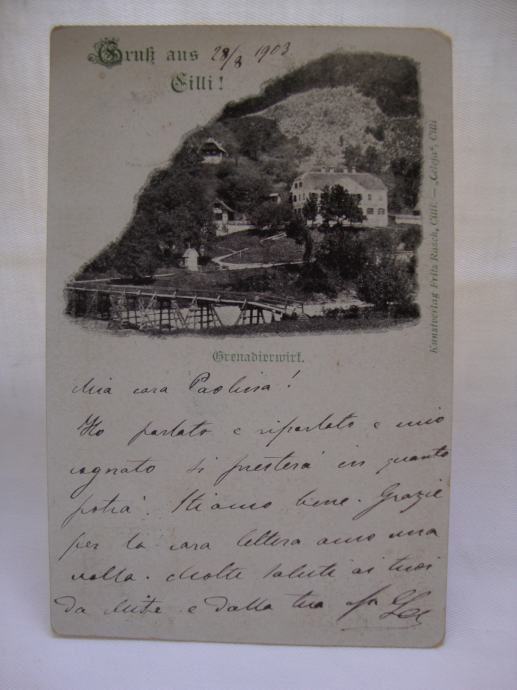 Gruß aus 28/8 1903
Cilli!
Kunstverlag Fritz Rasch, Cilli. — „Celeja“, Cilli
Grenadierwirt.
Mia cara Paolina!
Ho parlato e riparlato e mio
cognato si presterà in quanto
potrà. Stiamo bene. Grazie
per la cara lettera
volta. Molte saluti ai tuoi
da e dalla tua